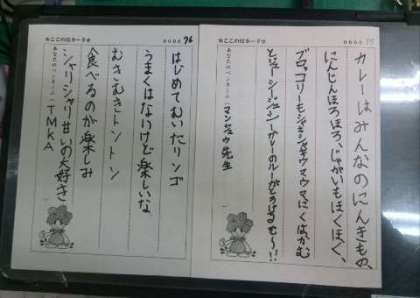 カレーはみんなのにんきもの、
にんじんほろほろ、じゃがいもほくほく、
ブロッコリーもシャキシャキウマウマにくはかむ
とジューシージューシーカレーのルーがとろけるむ〜!!
あなたのペンネーム:マンジュウ先生
76
はじめてむいたリンゴ
うまくはないけど楽しいな
むきむきトントン
食べるのが楽しみ
シャリシャリ甘いの大好き
あなたのペンネーム:TMKA